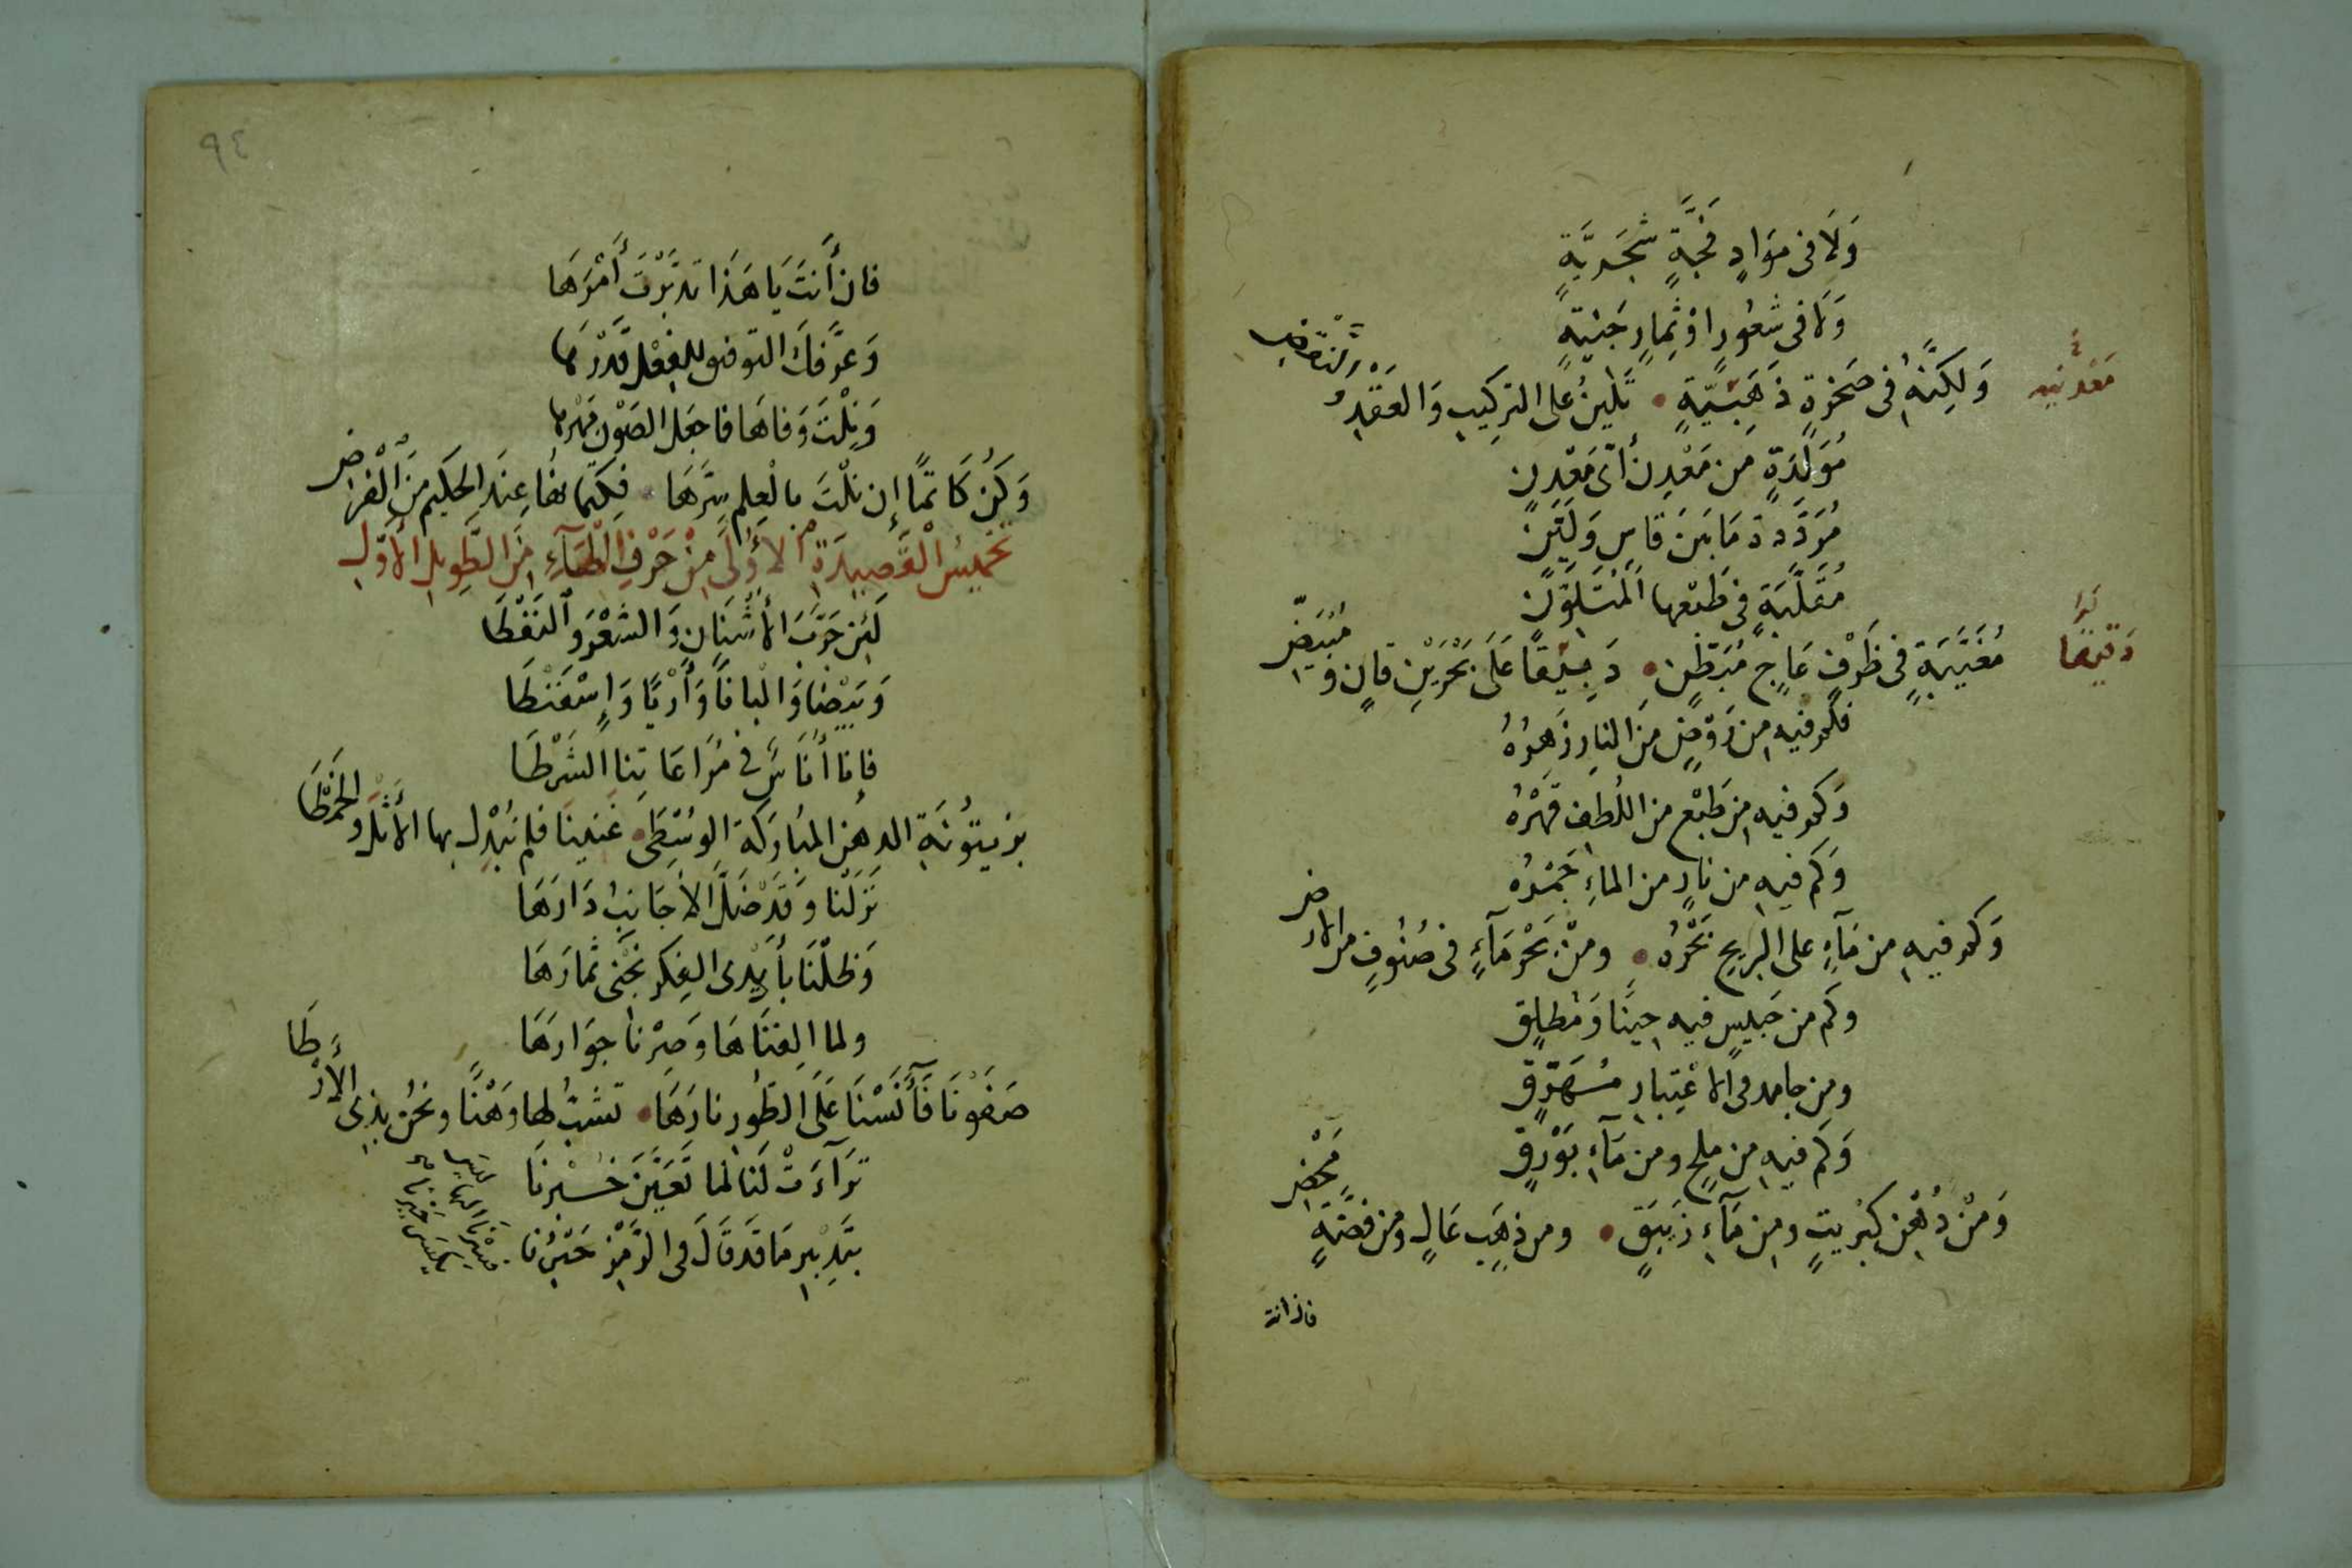 وَلَا فى مَوَادٍ فَجَّةٍ شَجَرِيَّةٍ
وَلَا فى شعُورٍ اوْ ثِمارٍ جَنِيّةٍ
وَلكِنَّهُ فى صَخرةٍ ذَهَبيّةٍ • تَلينُ على التركيب وَالعَقْدِ وَالنقض
معدنيه
مُوَلَّدَةٍ من مَعْدِنٍ أىّ مَعْدِنٍ
مُرَدَّدة مَا بَينَ قاسٍ وَلَيّنٍ
مُقَلَّبَةٍ فى طَبْعها المُتَلوّنِ
مُغَيَّبَةٍ فى ظَرْفٍ عَاجٍ مُبَطّنٍ • دَقِيقًا عَلَى بَحْرَيْنِ قانٍ ومُبْيَضِّ
نوا
دَقيقا
فكم فيه من رَوْضٍ منَ النار زَهرُهُ
وَكم فيه من طَبْعٍ من اللُطفِ قَهْرُهُ
وَكَم فيه من نارٍ من الماءِ جَمْرُهُ
وَكم فيه من مَآءٍ على الريح بَحْرُهُ • ومنْ بَحْرِ مَآءٍ فى صُنُوفٍ من الارض
وكَم من حَبيسٍ فيه حينًا وَمُطلَقٍ
ومن جامد فى الاعْتِبارِ مُهَرَّقٍ
وَكَم فيه من مِلحٍ ومن مَآءِ بَوْرَقٍ
وَمنْ دُهْنِ كبْريتٍ ومن مَآءِ زَيبَقٍ • ومن ذهَبٍ عَالٍ ومن فضّةٍ مَحْضِ
فان انت
٩٤
فان أنتَ يَا هَذَا تدَبَّرْتَ أَمْرَهَا
وَعرَّفكَ التوفيق للفعْل قدْرَهَا
وَنِلْتَ وَفاهَا فاجعَل الصَوْن مَهْرها
وَكُن كَاتمًا إن نلْتَ بالعِلم سِرَّهَا • فكتمانها عِندَ الحَكيم مِنَ الْفَرْضِ
تخميسُ الْقَصِيدَةِ الأُولَى مِنْ حَرْفِ الطَّآءِ منَ الطَّوِيلِ الأَوَّلِ
لَئِن جَرَّبَ الأُشْنَانَ وَالشعْرَ وَالنَفْطَا
وَبَيْضًا وَالْبانًا وَأَرْيًا وَإسْفَنْطَا
فإنا أُنَاسٌ فى مُرَاعَاتنا الشَرْطَا
بزيتُونَةِ الدهنِ المبَارَكَةِ الوُسْطَى • غَنينَا فلم نُبْدِل بها الأثلَ والخَمْطَا
نَزَلْنا وقَدْ ضَلَّ الأجَانِبُ دَارَهَا
وَظلْنَا بأيْدى الفِكر نَجْنى ثمارَهَا
ولما الِفْنَاهَا وَصِرْنا جوَارَهَا
صَفَوْنَا فَآنَسْنَا عَلَى الطُورِ نارَهَا • تشبُّ لها وَهْنًا ونحْنُ بذى الأَرْطَا
تَرَآءَتْ لَنَا لما تَعَيَّنَ خُسْرنَا
بتَدبْيرِ مَا قَد قالَ فى الرَّمْز حَبْرُنا